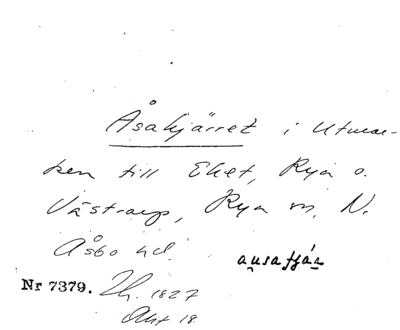 Åsakjärret i Utmar-
ken till Eket, Rya o.
Västraup, Rya sn, N.
Åsbo hd.
ausafjác
Nr 7379. Lh. 1827
Akt 18